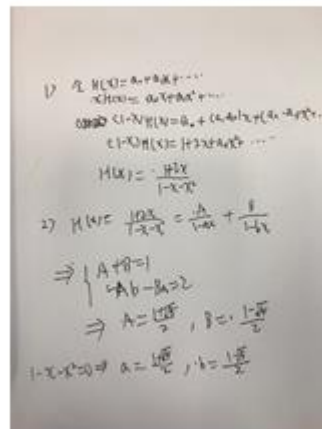 1) 令 H(x) = a₀ + a₁x + ……
xH(x) = a₀x + a₁x² + ……
(1-x)H(x) = a₀ + (a₁-a₀)x + (a₂-a₁)x² ……
(1-x)H(x) = 1+2x+a₀x² ……
H(x) = 1+2x / 1-x-x²
2) H(x) = 1+2x / 1-x-x² = A / 1-ax + B / 1-bx
⇒ { A+B=1
-Ab-Ba=2
⇒ A = 1+√5 / 2 , B = 1-√5 / 2
1-x-x²=0 ⇒ a = 1+√5 / 2 , b = 1-√5 / 2